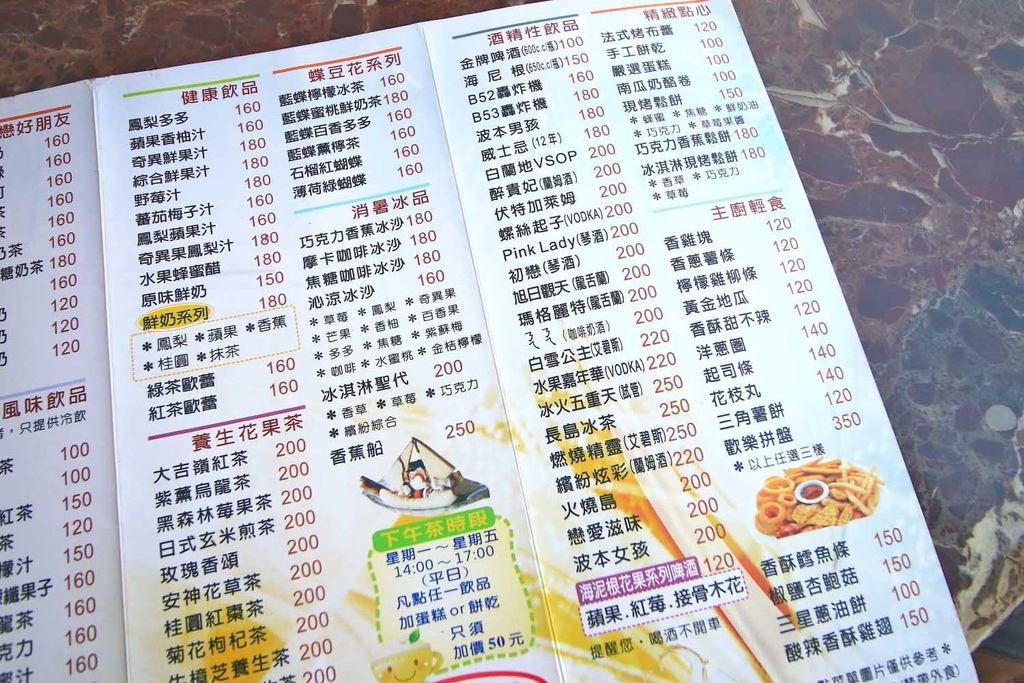 戀好朋友
160
160
160
160
奶茶 160
糖奶茶 180
160
120
120
120
風味飲品
只提供冷飲
100
100
紅茶 150
120
檬汁 150
纖果子 160
龍茶 160
巧克力 160
160
健康飲品
鳳梨多多 160
蘋果香柚汁 160
奇異鮮果汁 180
綜合鮮果汁 160
野莓汁 180
蕃茄梅子汁 160
鳳梨蘋果汁 160
奇異果鳳梨汁 180
水果蜂蜜醋 180
原味鮮奶 150
鮮奶系列 180
＊鳳梨 ＊蘋果 ＊香蕉
＊桂圓 ＊抹茶
綠茶歐蕾 160
紅茶歐蕾 160
養生花果茶
大吉嶺紅茶 200
紫薰烏龍茶 200
黑森林莓果茶 200
日式玄米煎茶 200
玫瑰香頌 200
安神花草茶 200
桂圓紅棗茶 200
菊花枸杞茶 200
牛樟芝養生茶 200
蝶豆花系列
藍蝶檸檬冰茶 160
藍蝶蜜桃鮮奶茶 180
藍蝶百香多多 160
藍蝶薰檸茶 160
石榴紅蝴蝶 160
薄荷綠蝴蝶 160
消暑冰品
巧克力香蕉冰沙 180
摩卡咖啡冰沙 180
焦糖咖啡冰沙 180
沁涼冰沙 160
＊草莓 ＊鳳梨 ＊奇異果
＊芒果 ＊香柚 ＊百香果
＊多多 ＊焦糖 ＊紫蘇梅
＊咖啡 ＊水蜜桃 ＊金桔檸檬
冰淇淋聖代 200
＊香草 ＊草莓 ＊巧克力
＊繽紛綜合
香蕉船 250
下午茶時段
星期一～星期五
14:00～17:00
(平日)
凡點任一飲品
加蛋糕or餅乾
只須
加價50元
酒精性飲品
金牌啤酒(600c.c/瓶) 100
海尼根(650c.c/瓶) 150
B52轟炸機 180
B53轟炸機 180
波本男孩 180
威士忌(12年) 180
白蘭地VSOP 200
醉貴妃(蘭姆酒) 200
伏特加萊姆 200
螺絲起子(VODKA) 200
Pink Lady(琴酒) 200
初戀(琴酒) 200
旭日觀天(龍舌蘭) 200
瑪格麗特(龍舌蘭) 200
ㄋㄋ(咖啡奶酒) 200
白雪公主(艾碧斯) 220
水果嘉年華(VODKA) 220
冰火五重天(試管) 250
長島冰茶 250
燃燒精靈(艾碧斯) 250
繽紛炫彩(蘭姆酒) 220
火燒島 200
戀愛滋味 200
波本女孩 200
海泥根花果系列啤酒 120
蘋果.紅莓.接骨木花
提醒您，喝酒不開車
精緻點心
法式烤布蕾 120
手工餅乾 100
嚴選蛋糕 100
南瓜奶酪卷 100
現烤鬆餅 150
＊蜂蜜 ＊焦糖 ＊鮮奶油
＊巧克力 ＊草莓果醬
巧克力香蕉鬆餅 180
冰淇淋現烤鬆餅 180
＊香草 ＊巧克力
＊草莓
主廚輕食
香雞塊 120
香蔥薯條 120
檸檬雞柳條 120
黃金地瓜 120
香酥甜不辣 120
洋蔥圈 140
起司條 140
花枝丸 140
三角薯餅 120
歡樂拼盤 350
＊以上任選三樣
香酥鱈魚條 150
椒鹽杏鮑菇 150
三星蔥油餅 100
酸辣香酥雞翅 150
圖片僅供參考＊
帶外食)